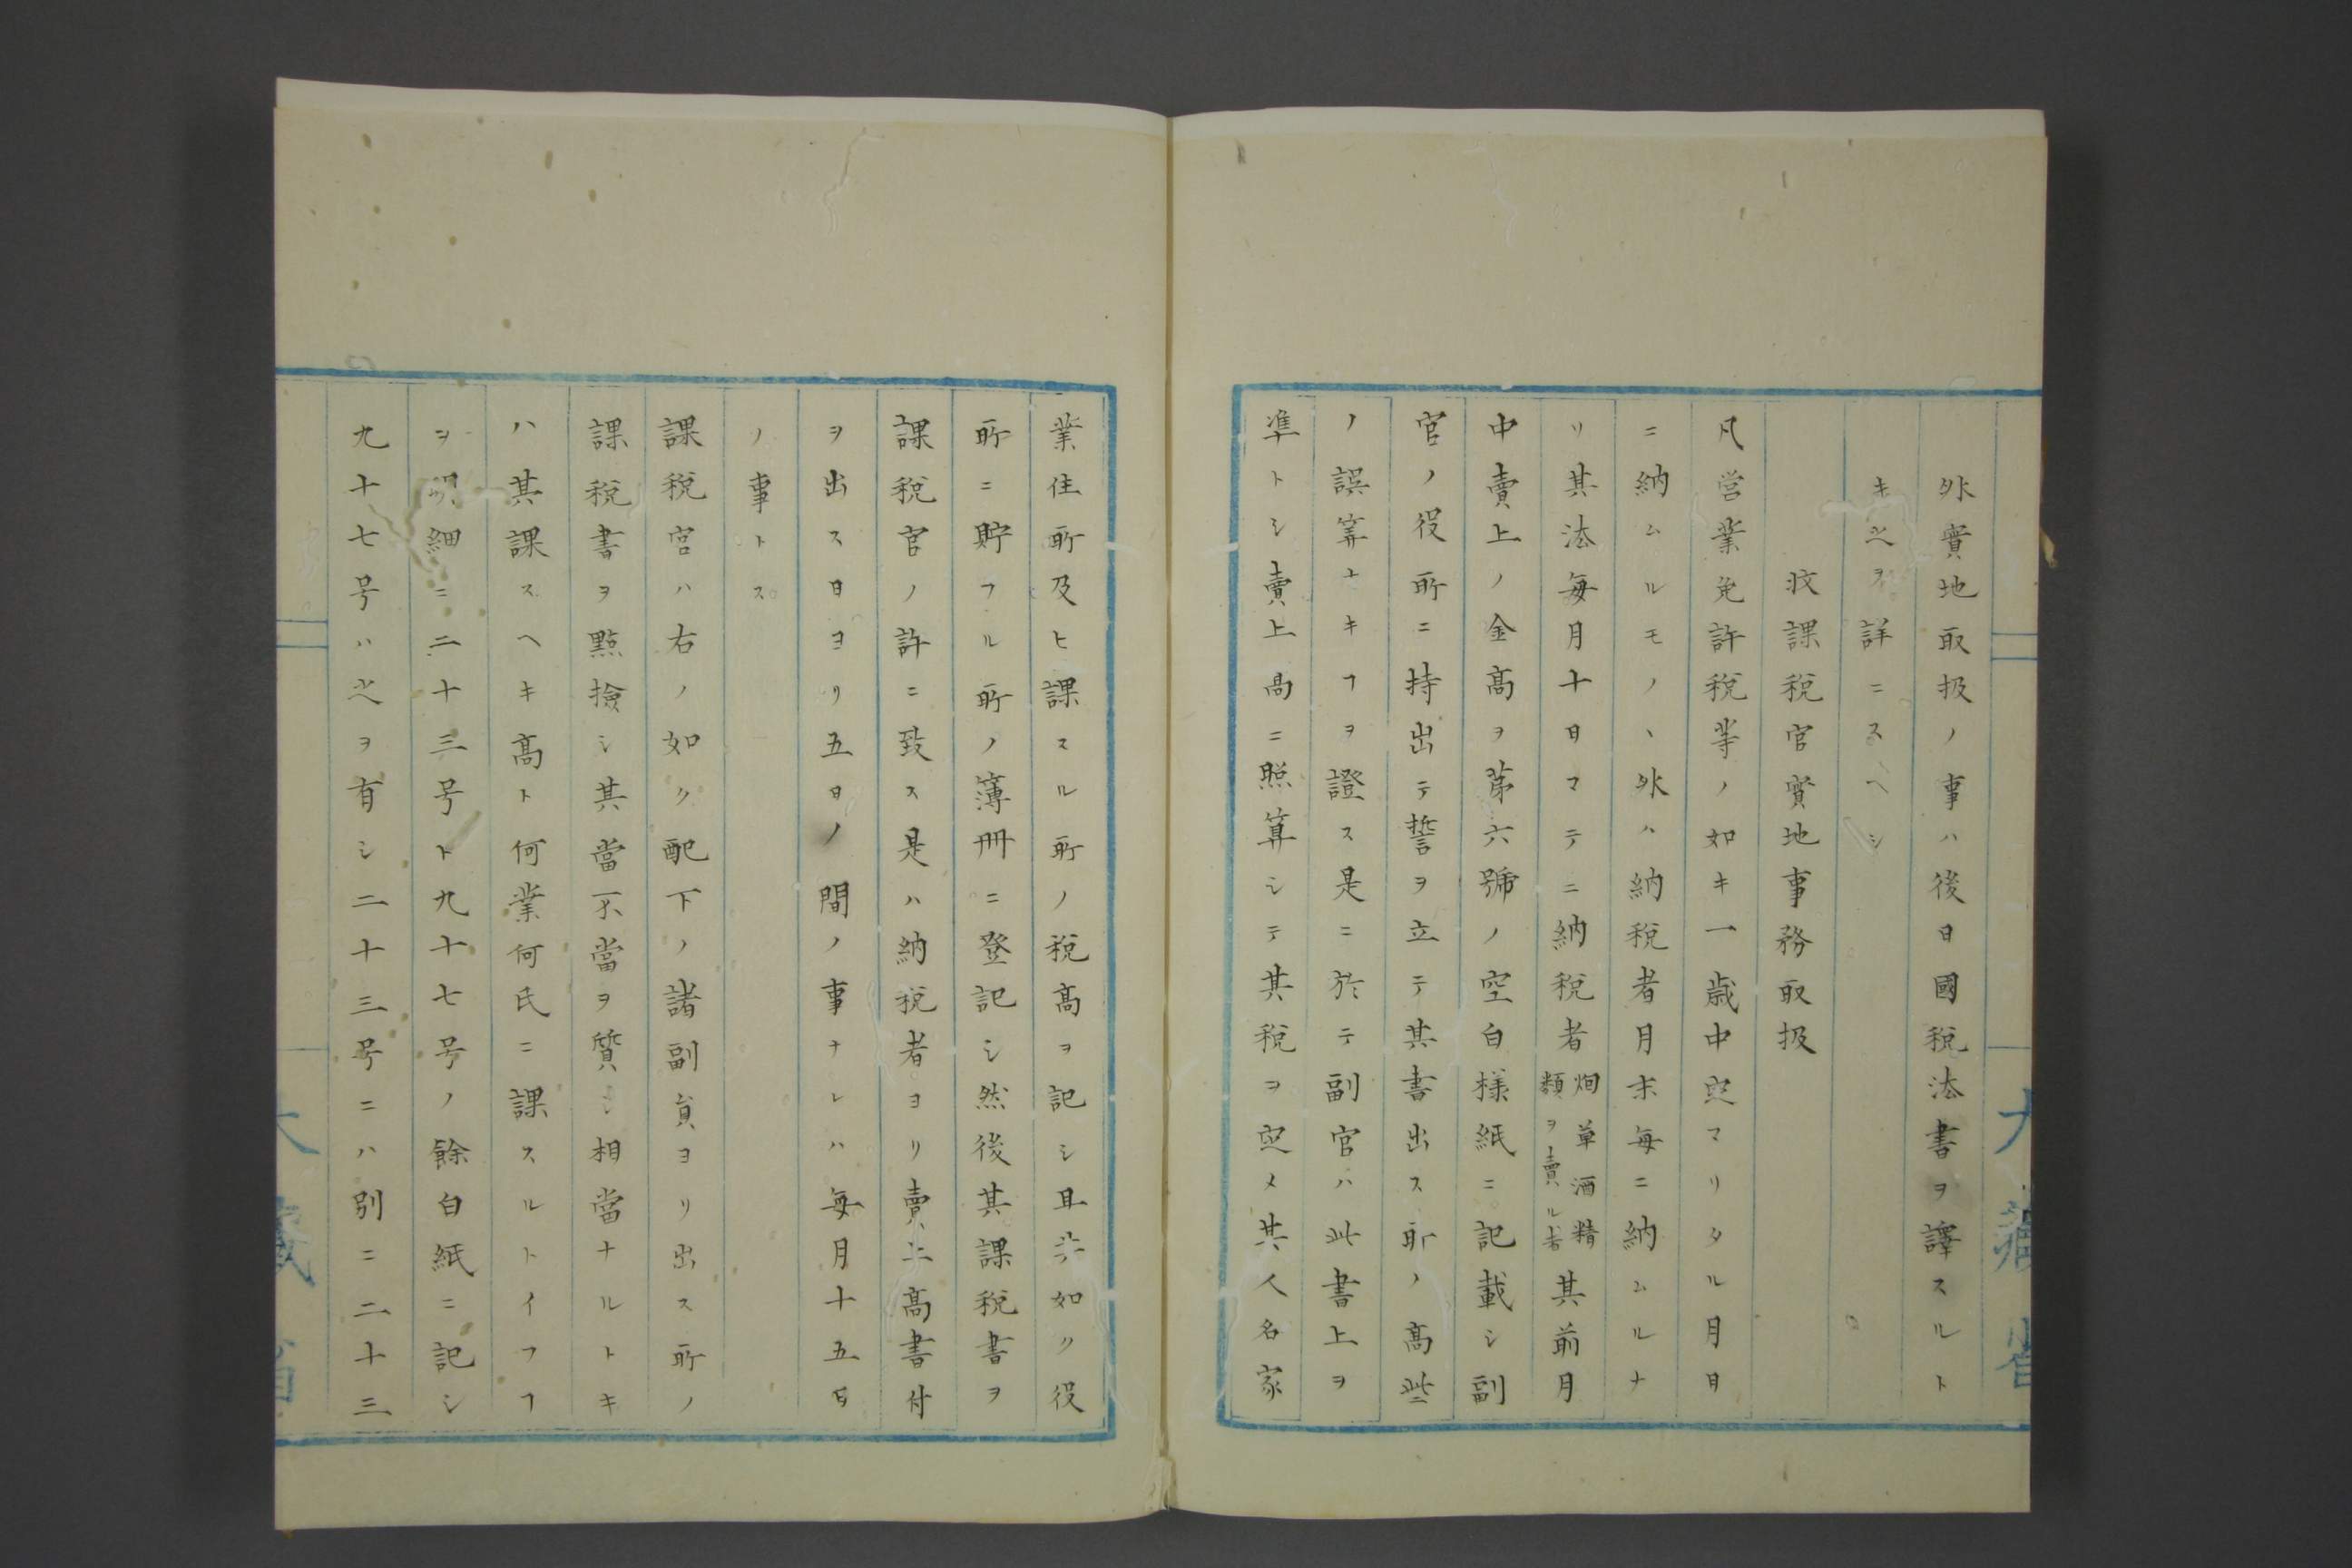 外實地取扱ノ事ハ後日國税法書ヲ譯スルト
キ之ヲ詳ニスヘシ
収課税官實地事務取扱
凡営業免許税等ノ如キ一歳中定マリタル月日
ニ納ムルモノヽ外ハ納税者月末毎ニ納ムルナ
リ其法毎月十日マテニ納税者烟草酒精類ヲ賣ル者其前月
中賣上ノ金高ヲ苐六號ノ空白様紙ニ記載シ副
官ノ役所ニ持出テ誓ヲ立テ其書出ス所ノ高些
ノ誤筭ナキヿヲ證ス是ニ於テ副官ハ此書上ヲ
準トシ賣上高ニ照算シテ其税ヲ定メ其人名家
業住所及ヒ課スル所ノ税高ヲ記シ且如ク役
所ニ貯フル所ノ薄冊ニ登記シ然後其課税書ヲ
課税官ノ許ニ致ス是ハ納税者ヨリ賣上高書付
ヲ出ス日ヨリ五日ノ間ノ事ナレハ毎月十五日
ノ事トス
課税官ハ右ノ如ク配下ノ諸副員ヨリ出ス所ノ
課税書ヲ點撿シ其當不當ヲ質シ相當ナルトキ
ハ其課スヘキ高ト何業何氏ニ課スルトイフヿ
ヲ明細ニ二十三号ト九十七号ノ餘白紙ニ記シ
九十七号ハ之ヲ有シ二十三号ニハ別ニ二十三
大藏省